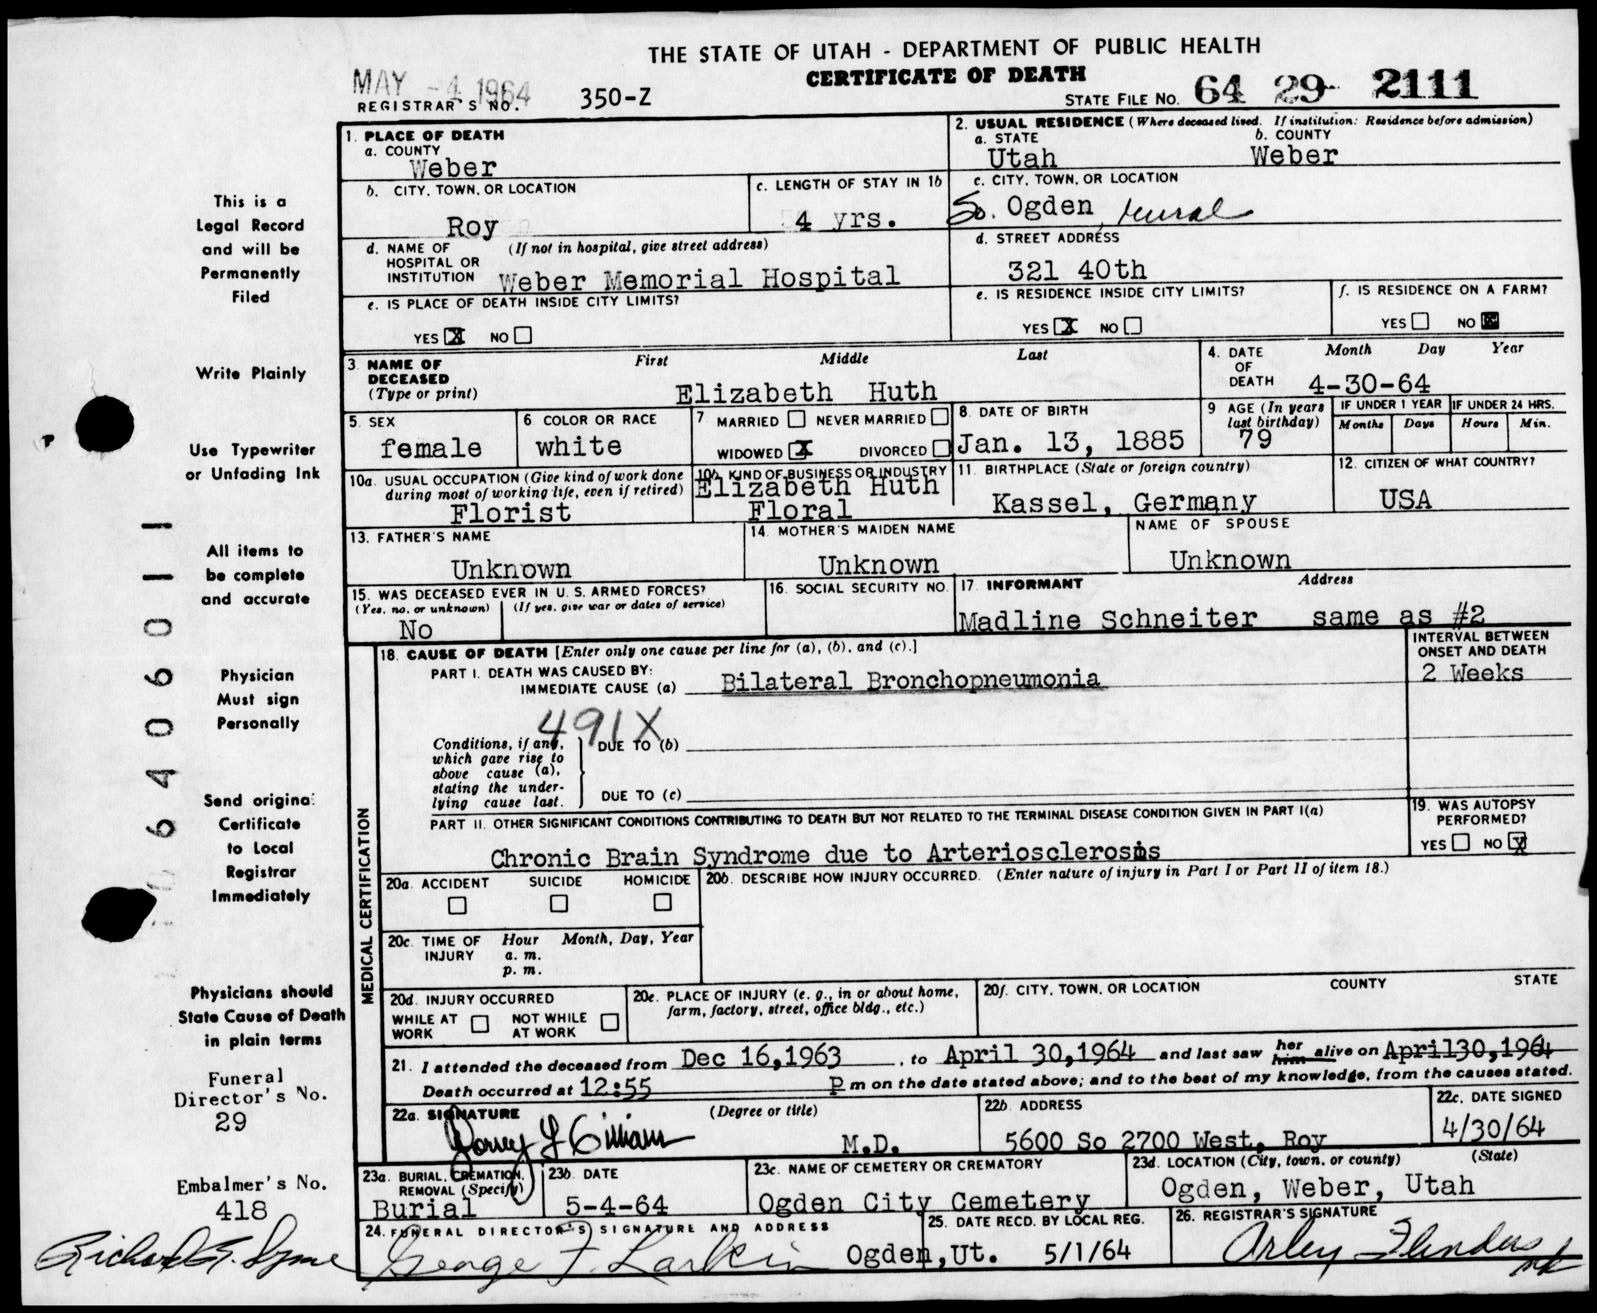 THE STATE OF UTAH - DEPARTMENT OF PUBLIC HEALTH
CERTIFICATE OF DEATH
MAY -4 1964
REGISTRAR'S NO. 350-Z
STATE FILE NO. 64 29 2111
This is a
Legal Record
and will be
Permanently
Filed
Write Plainly
Use Typewriter
or Unfading Ink
All items to
be complete
and accurate
Physician
Must sign
Personally
Send original
Certificate
to Local
Registrar
Immediately
Physicians should
State Cause of Death
in plain terms
Funeral
Director's No.
29
Embalmer's No.
418
1. PLACE OF DEATH
a. COUNTY
Weber
2. USUAL RESIDENCE (Where deceased lived. If institution: Residence before admission)
a. STATE b. COUNTY
Utah Weber
b. CITY, TOWN, OR LOCATION
Roy
c. LENGTH OF STAY IN 1b
4 yrs.
c. CITY, TOWN, OR LOCATION
So. Ogden, rural
d. NAME OF HOSPITAL OR INSTITUTION (If not in hospital, give street address)
Weber Memorial Hospital
d. STREET ADDRESS
321 40th
e. IS PLACE OF DEATH INSIDE CITY LIMITS?
YES X NO
e. IS RESIDENCE INSIDE CITY LIMITS?
YES X NO
f. IS RESIDENCE ON A FARM?
YES NO
3. NAME OF DECEASED (Type or print) First Middle Last
Elizabeth Huth
4. DATE OF DEATH Month Day Year
4-30-64
5. SEX
female
6. COLOR OR RACE
white
7 MARRIED NEVER MARRIED
WIDOWED X DIVORCED
8. DATE OF BIRTH
Jan. 13, 1885
9 AGE (In years last birthday)
79
IF UNDER 1 YEAR IF UNDER 24 HRS.
Months Days Hours Min.
10a. USUAL OCCUPATION (Give kind of work done during most of working life, even if retired)
Florist
10b. KIND OF BUSINESS OR INDUSTRY
Elizabeth Huth
Floral
11. BIRTHPLACE (State or foreign country)
Kassel, Germany
12. CITIZEN OF WHAT COUNTRY?
USA
13. FATHER'S NAME
Unknown
14. MOTHER'S MAIDEN NAME
Unknown
NAME OF SPOUSE
Unknown
15. WAS DECEASED EVER IN U. S. ARMED FORCES?
(Yes, no, or unknown) (If yes, give war or dates of service)
No
16. SOCIAL SECURITY NO.
17. INFORMANT Address
Madline Schneiter same as #2
MEDICAL CERTIFICATION
18. CAUSE OF DEATH [Enter only one cause per line for (a), (b), and (c).]
INTERVAL BETWEEN
ONSET AND DEATH
PART I. DEATH WAS CAUSED BY:
IMMEDIATE CAUSE (a) Bilateral Bronchopneumonia
2 Weeks
491X
Conditions, if any,
which gave rise to
above cause (a),
stating the under-
lying cause last.
DUE TO (b)
DUE TO (c)
PART II. OTHER SIGNIFICANT CONDITIONS CONTRIBUTING TO DEATH BUT NOT RELATED TO THE TERMINAL DISEASE CONDITION GIVEN IN PART I(a)
Chronic Brain Syndrome due to Arteriosclerosis
19. WAS AUTOPSY
PERFORMED?
YES NO X
20a. ACCIDENT SUICIDE HOMICIDE
20b. DESCRIBE HOW INJURY OCCURRED. (Enter nature of injury in Part I or Part II of item 18.)
20c. TIME OF INJURY Hour Month, Day, Year
a. m.
p. m.
20d. INJURY OCCURRED
WHILE AT WORK NOT WHILE AT WORK
20e. PLACE OF INJURY (e. g., in or about home, farm, factory, street, office bldg., etc.)
20f. CITY, TOWN, OR LOCATION COUNTY STATE
21. I attended the deceased from Dec 16,1963, to April 30,1964 and last saw her him alive on April30,1964
Death occurred at 12:55 P m on the date stated above; and to the best of my knowledge, from the causes stated.
22a. SIGNATURE (Degree or title)
M.D.
22b. ADDRESS
5600 So 2700 West, Roy
22c. DATE SIGNED
4/30/64
23a. BURIAL, CREMATION, REMOVAL (Specify)
Burial
23b. DATE
5-4-64
23c. NAME OF CEMETERY OR CREMATORY
Ogden City Cemetery
23d. LOCATION (City, town, or county) (State)
Ogden, Weber, Utah
24. FUNERAL DIRECTOR'S SIGNATURE AND ADDRESS
George F Larkin Ogden, Ut.
25. DATE RECD. BY LOCAL REG.
5/1/64
26. REGISTRAR'S SIGNATURE
Arley Flinders